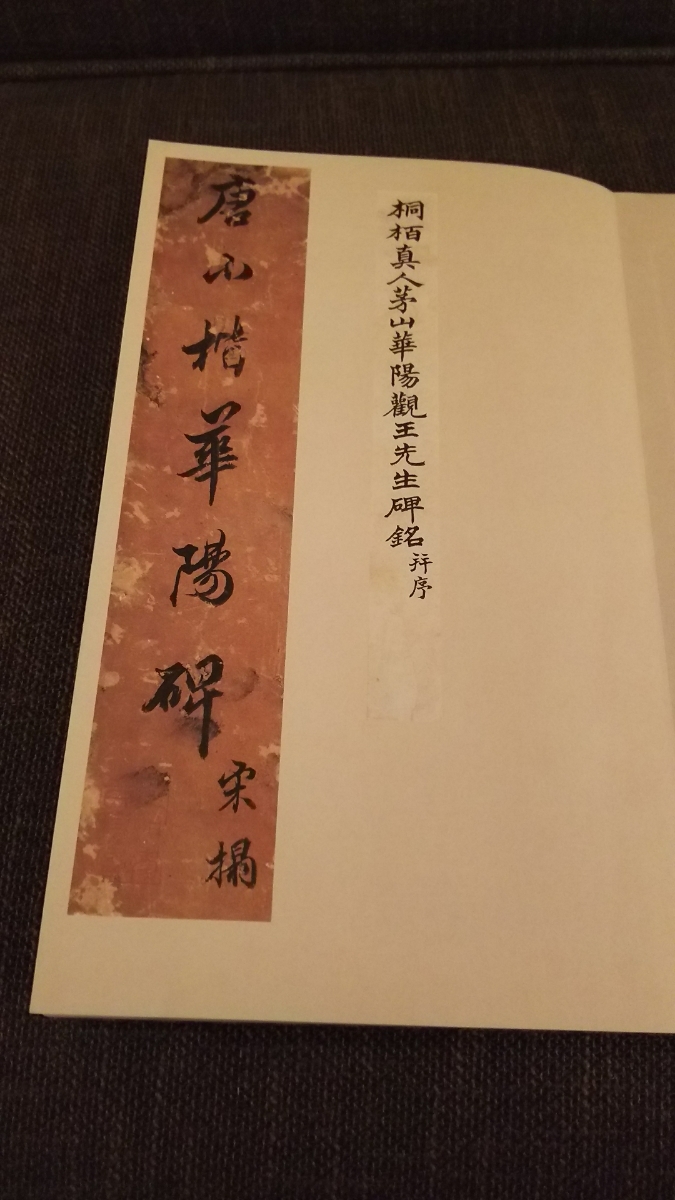 桐栢真人茅山華陽觀王先生碑銘 并序
唐小楷華陽碑 宋搨